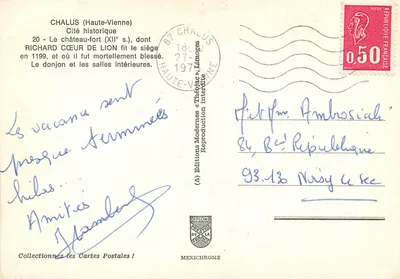 CHALUS (Haute-Vienne)
Cité historique
20 - Le château-fort (XII° s.), dont
RICHARD CŒUR DE LION fit le siège
en 1199, et où il fut mortellement blessé.
Le donjon et les salles intérieures.
87 CHALUS
18
27-
197
HAUTE-VIENNE
0,50
Les vacances sont
presque terminées
hélas...
Amitiés
(A) Editions Modernes « Théojac », Limoges
Reproduction interdite
M et Mme Ambrosiak
84, Bd République
93-130 Noisy le Sec
Collectionnez les Cartes Postales !
MEXICHROME